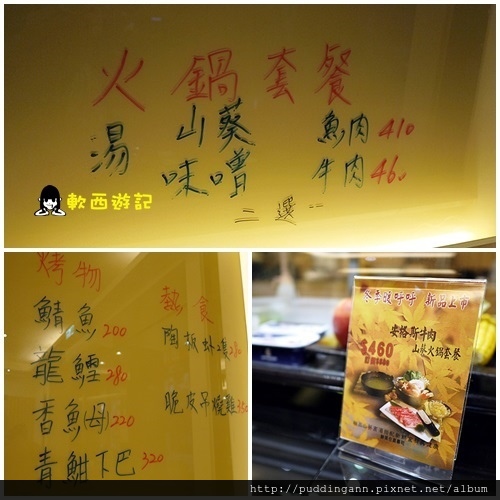 火鍋套餐
湯 山葵 魚肉 410
味噌 牛肉 460
二選一
軟西遊記
烤物
鯖魚 200
龍鱈 280
香魚(母) 220
青魽下巴 320
熱食
陶板
脆皮吊燒雞
冬季暖呼呼 新品上市
安格斯牛肉
山葵火鍋套餐
$460
http://puddingann.pixnet.net/album